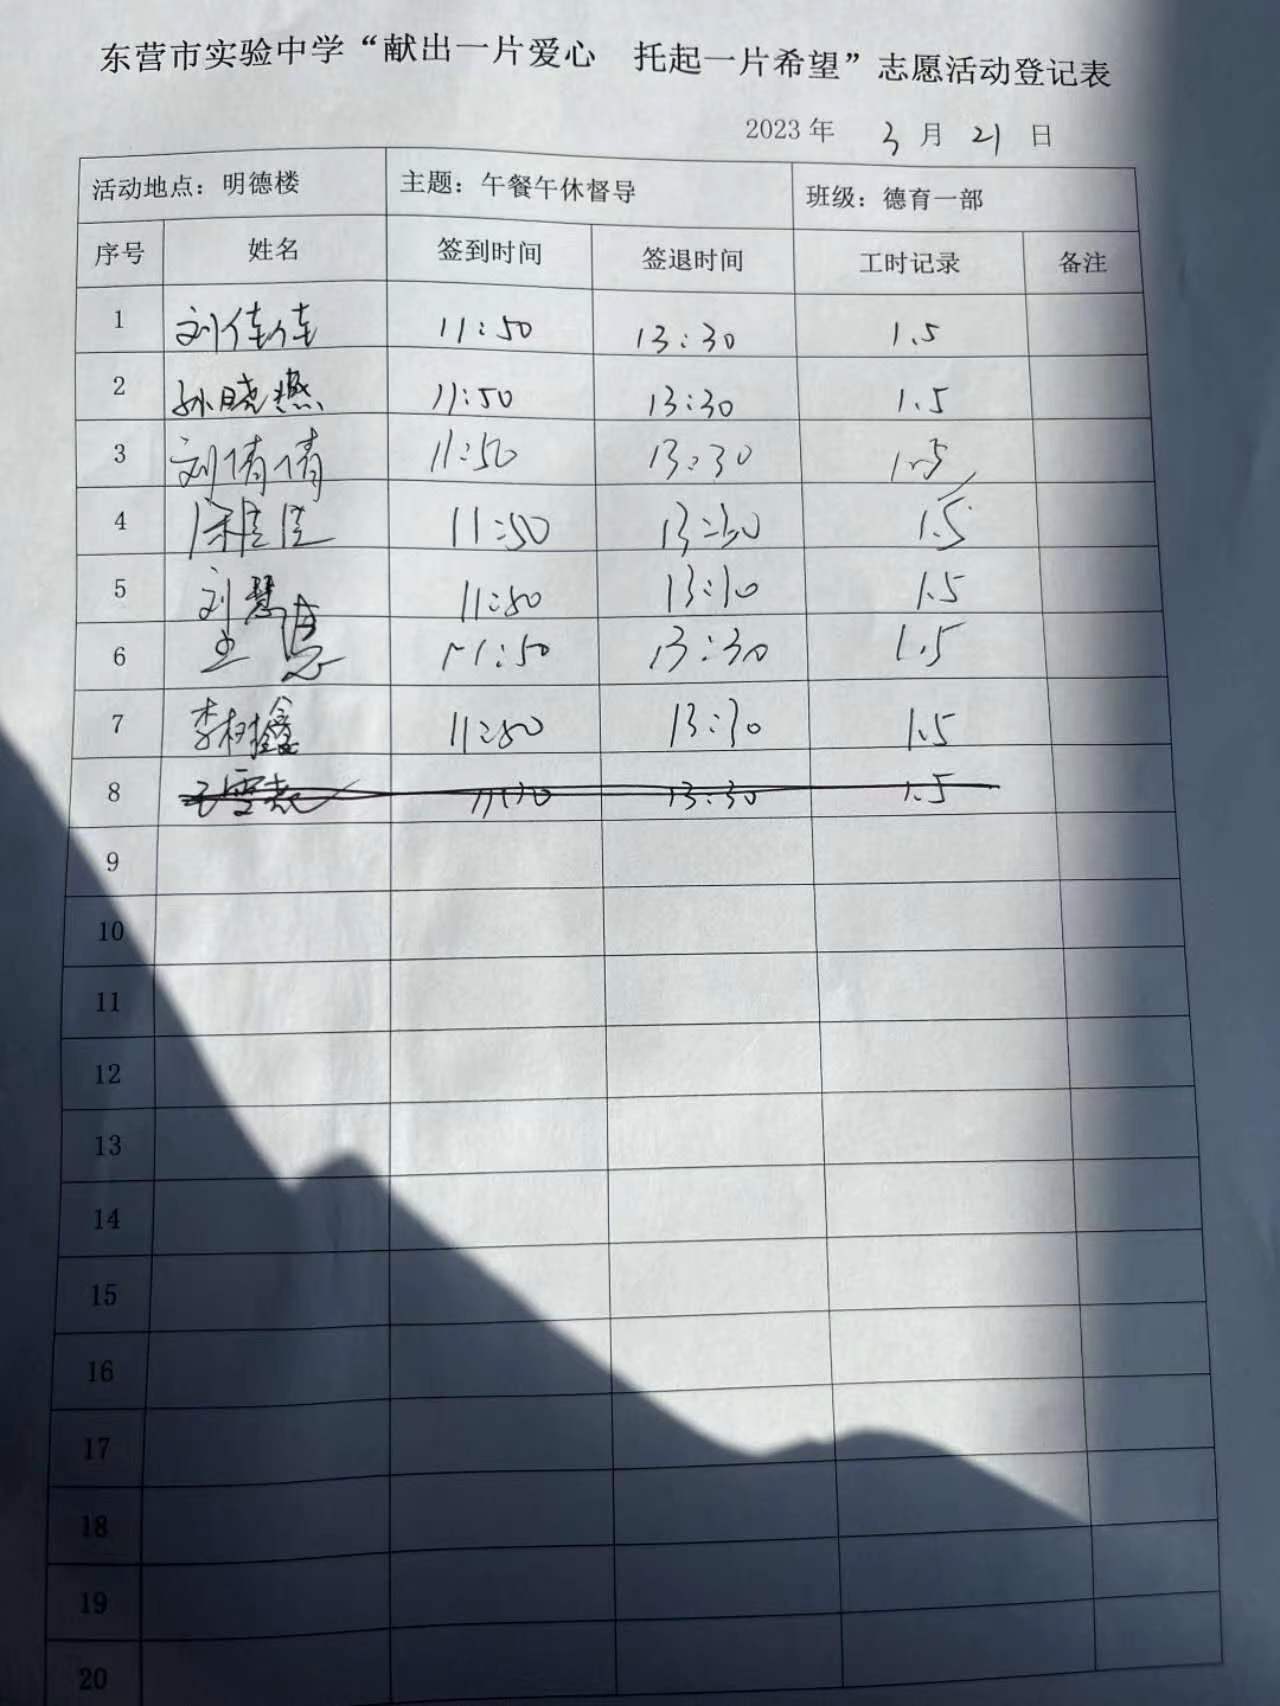 东营市实验中学“献出一片爱心　托起一片希望”志愿活动登记表
2023 年 3 月 21 日
活动地点：明德楼 主题：午餐午休督导 班级：德育一部
序号 姓名 签到时间 签退时间 工时记录 备注
1 刘佳佳 11:50 13:30 1.5
2 孙晓燕 11:50 13:30 1.5
3 刘倩倩 11:50 13:30 1.5
4 11:50 13:30 1.5
5 刘慧 11:50 13:30 1.5
6 11:50 13:30 1.5
7 李树鑫 11:50 13:30 1.5
8 13:30 1.5
9
10
11
12
13
14
15
16
17
18
19
20